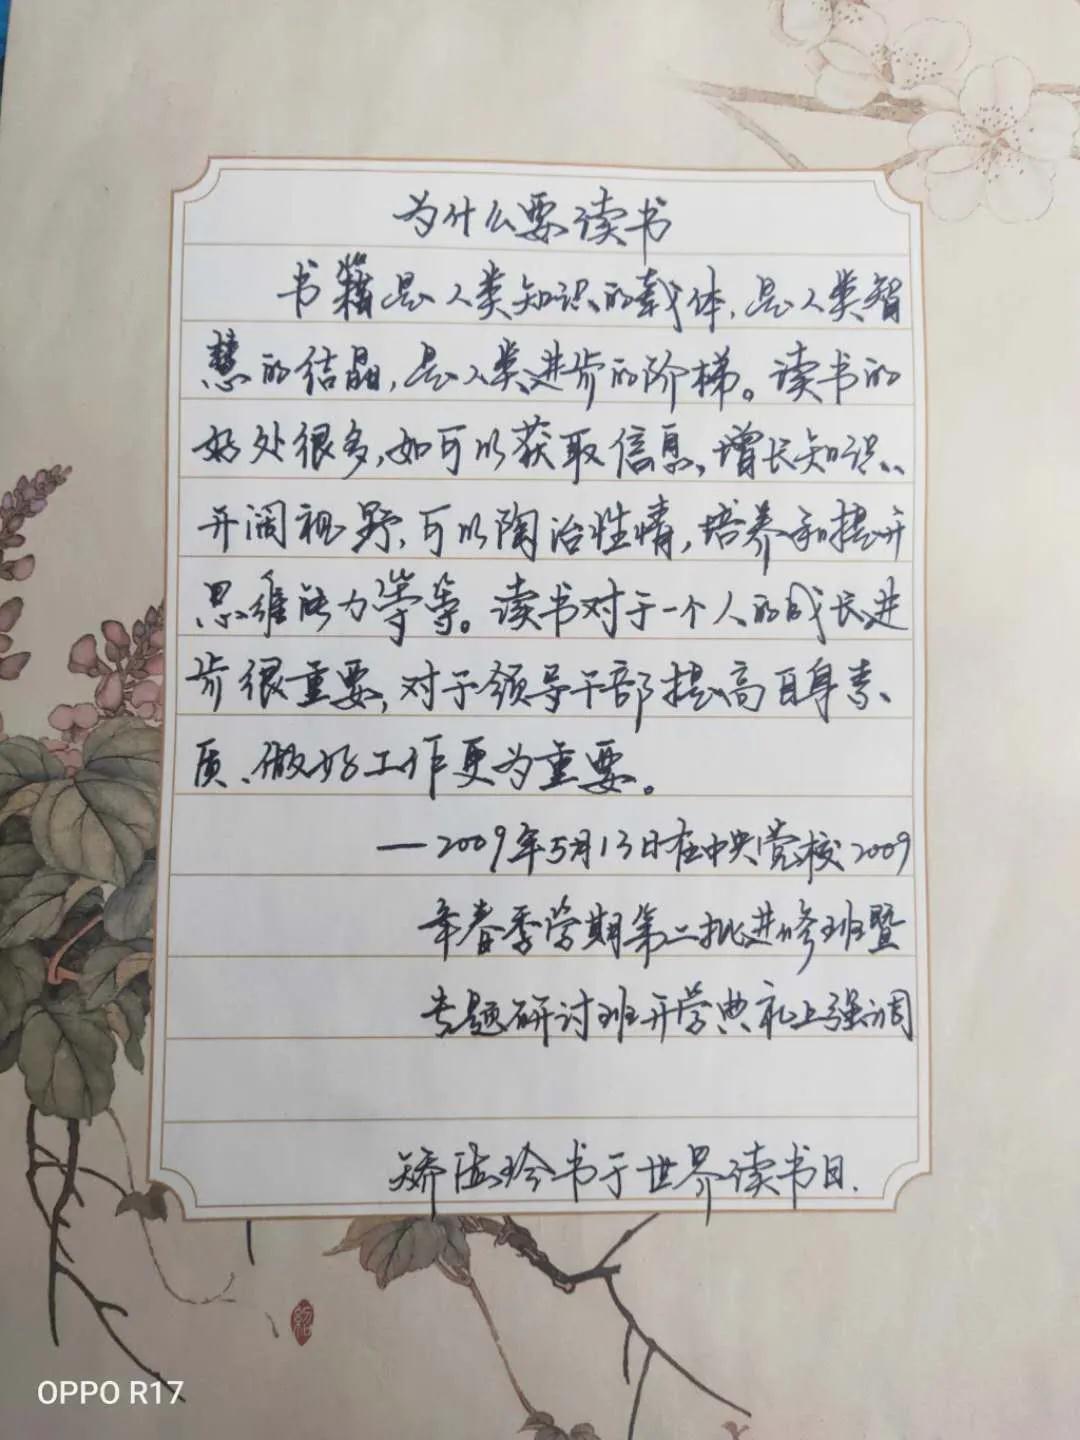 为什么要读书
书籍是人类知识的载体，是人类智
慧的结晶，是人类进步的阶梯。读书的
好处很多，如可以获取信息、增长知识、
开阔视野，可以陶冶性情，培养和提升
思维能力等等。读书对于一个人的成长进
步很重要，对于领导干部提高自身素
质、做好工作更为重要。
—2009年5月13日在中央党校2009
年春季学期第二批进修班暨
专题研讨班开学典礼上强调
矫德玲书于世界读书日.
OPPO R17